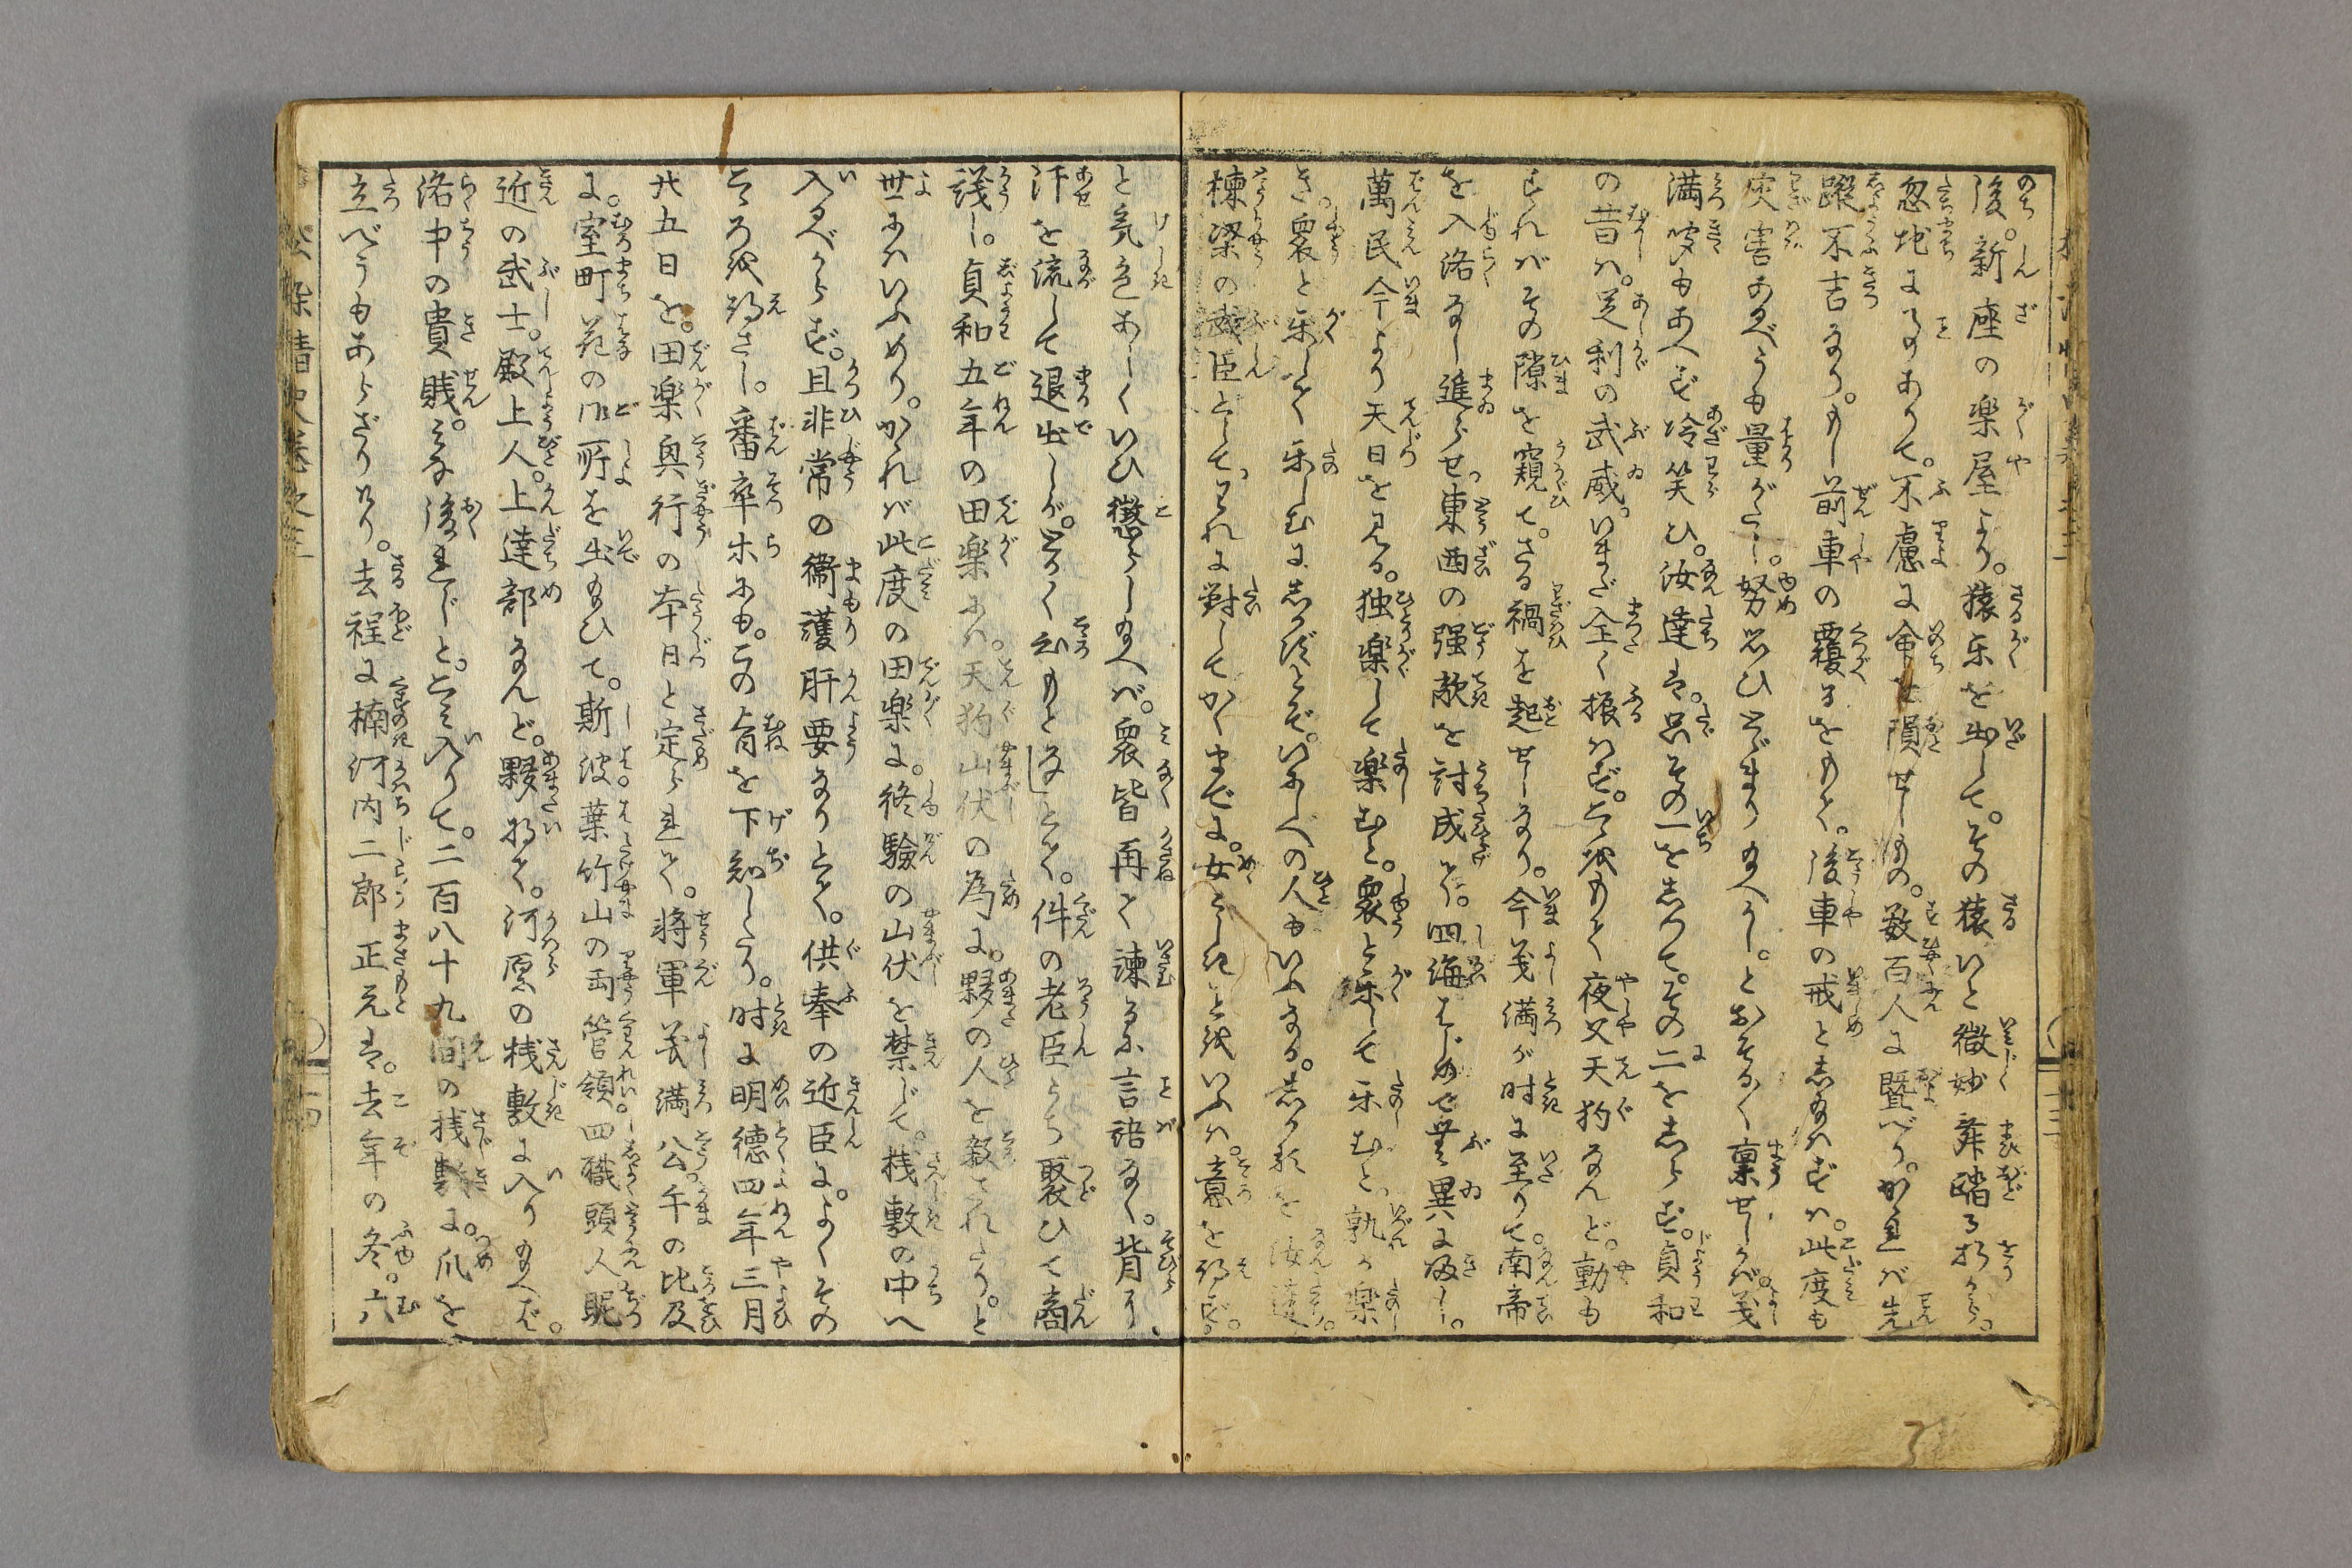 後。新座の楽屋より。猿楽を出して。その猿いと微妙舞踏る折から。
忽地によりありて。不慮に命を隕せしもの。数百人に曁べり。かゝれば先
蹤不吉なり。もし前車の覆るをもて。後車の戒と志給はずは。此度も
災害あるべうも量がたし。努思ひとゞまり給へかし。とおそる〳〵稟せしかば。義
満吻もあへず冷笑ひ。汝達は。只その一を志りて。その二を志らず。貞和
の昔は。足利の武威。いまだ全く振はず。こゝをもて夜叉天狗なんど。動も
すればその隙を窺ひて。さる禍を起せしなり。今義満が時に至りて。南帝
を入洛なし進らせ。東西の強敵を討成て。四海はじめて無異に皈し。
萬民今より天日を見る。独楽して楽むと。衆と楽して楽むと。孰か楽
き。衆と楽して楽しむに志かずとぞ。いにしへの人もいふなる。志かるを汝達。
棟梁の職臣として。われに對してかくまでに。女々しきことをいふは。意を得ず。
と気色あしくいひ懲らし給へば。衆皆再て諫るに言語なく。背に
汗を流して退出しが。かくてもとて。件の老臣うち聚ひて商
議し。貞和五年の田楽には。天狗山伏の為に。夥の人を殺されたり。と
世にはいふめり。かゝれば此度の田楽に。修験の山伏を禁じて。桟敷の中へ
入るべからず。且非常の衛護肝要なりとて。供奉の近臣に。よくその
こゝろを得さし。番卒等にも。この旨を下知したり。時に明徳四年三月
廿五日を。田楽興行の本日と定られて。将軍義満公。午の比及
に。室町花の御所を出給ひて。斯波。葉竹山の両管領。四職頭人昵
近の武士。殿上人。上達部なんど。夥将て。河原の桟敷に入り給へば。
洛中の貴賎。みな後れじと。こみ入りて。二百八十九間の桟敷に。爪を
立べうもあらざりけり。去程に楠河内二郎正元は。去年の冬。六